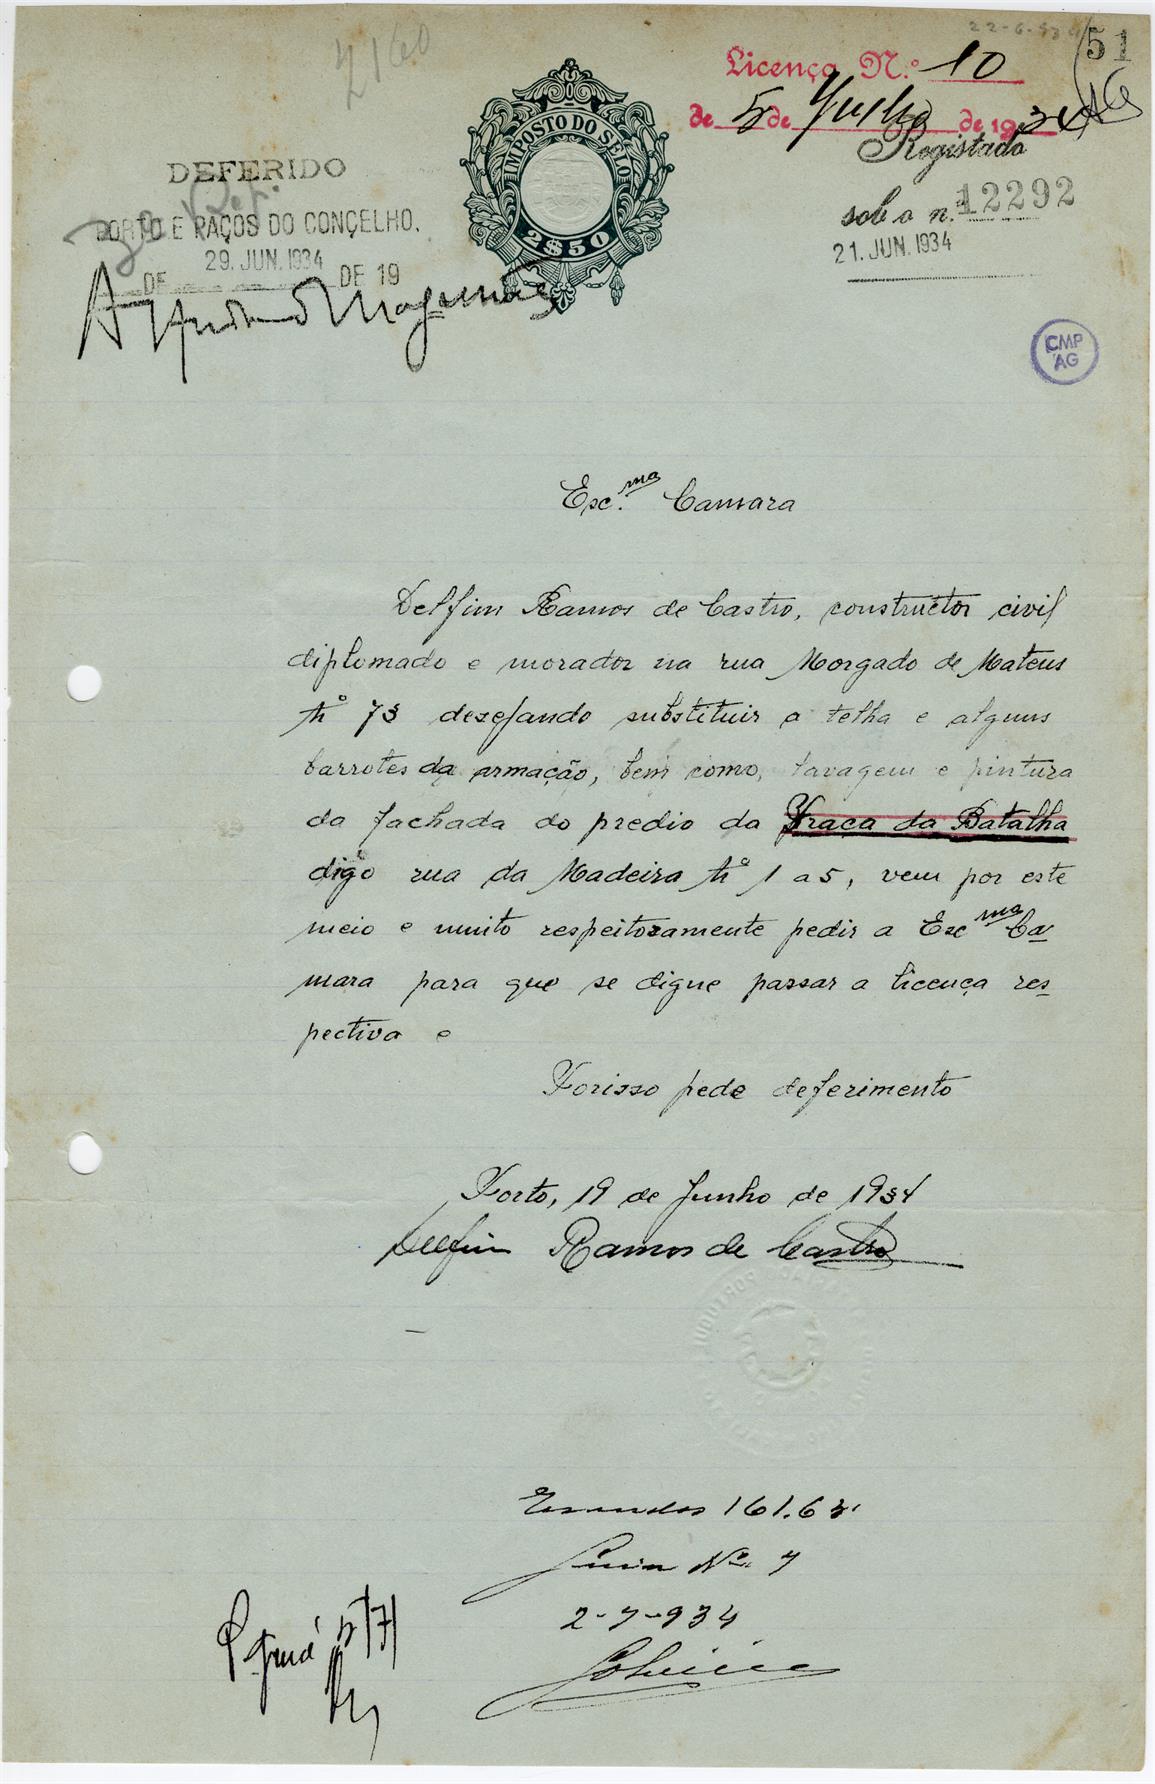 22-6-934
51
2160
Licença N.º 10
de 5 de Julho de 1934
Registado
sob o n.º 12292
21. JUN. 1934
IMPOSTO DO SELO
2$50
DEFERIDO
PORTO E PAÇOS DO CONCELHO,
29. JUN. 1934
DE DE 19
CMP
AG
Exc.ma Camara
Delfim Ramos de Castro, constructor civil
diplomado e morador na rua Morgado de Mateus
Nº 73 desejando substituir a telha e alguns
barrotes da armação, bem como, lavagem e pintura
da fachada do predio da Praça da Batalha
digo rua da Madeira Nº 1 a 5, vem por este
meio e muito respeitosamente pedir a Exc ma Ca-
mara para que se digne passar a licença res-
pectiva e
Porisso pede deferimento
Porto, 19 de Junho de 1934
Delfim Ramos de Castro
Escudos 161.63
Guia Nº 7
2-7-934
5/7/